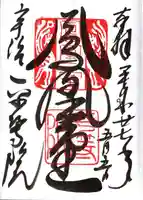 奉拝 平成廿七年五月五日
鳳凰堂
宇治 平等院